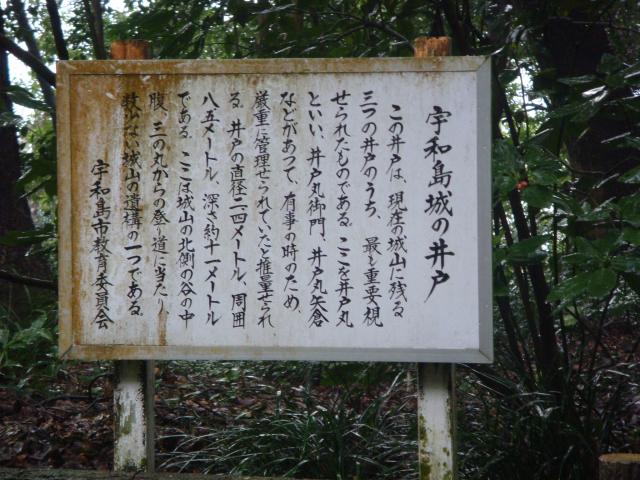 宇和島城の井戸
この井戸は、現在の城山に残る
三つの井戸のうち、最も重要視
せられたものである。ここを井戸丸
といい、井戸丸御門、井戸丸矢倉
などがあって、有事の時のため、
厳重に管理せられていたと推量せられ
る。井戸の直径二・四メートル、周囲
八・五メートル、深さ約十一メートル
である。ここは城山の北側の谷の中
腹、三の丸からの登り道に当たり
数少ない城山の遺構の一つである。
宇和島市教育委員会